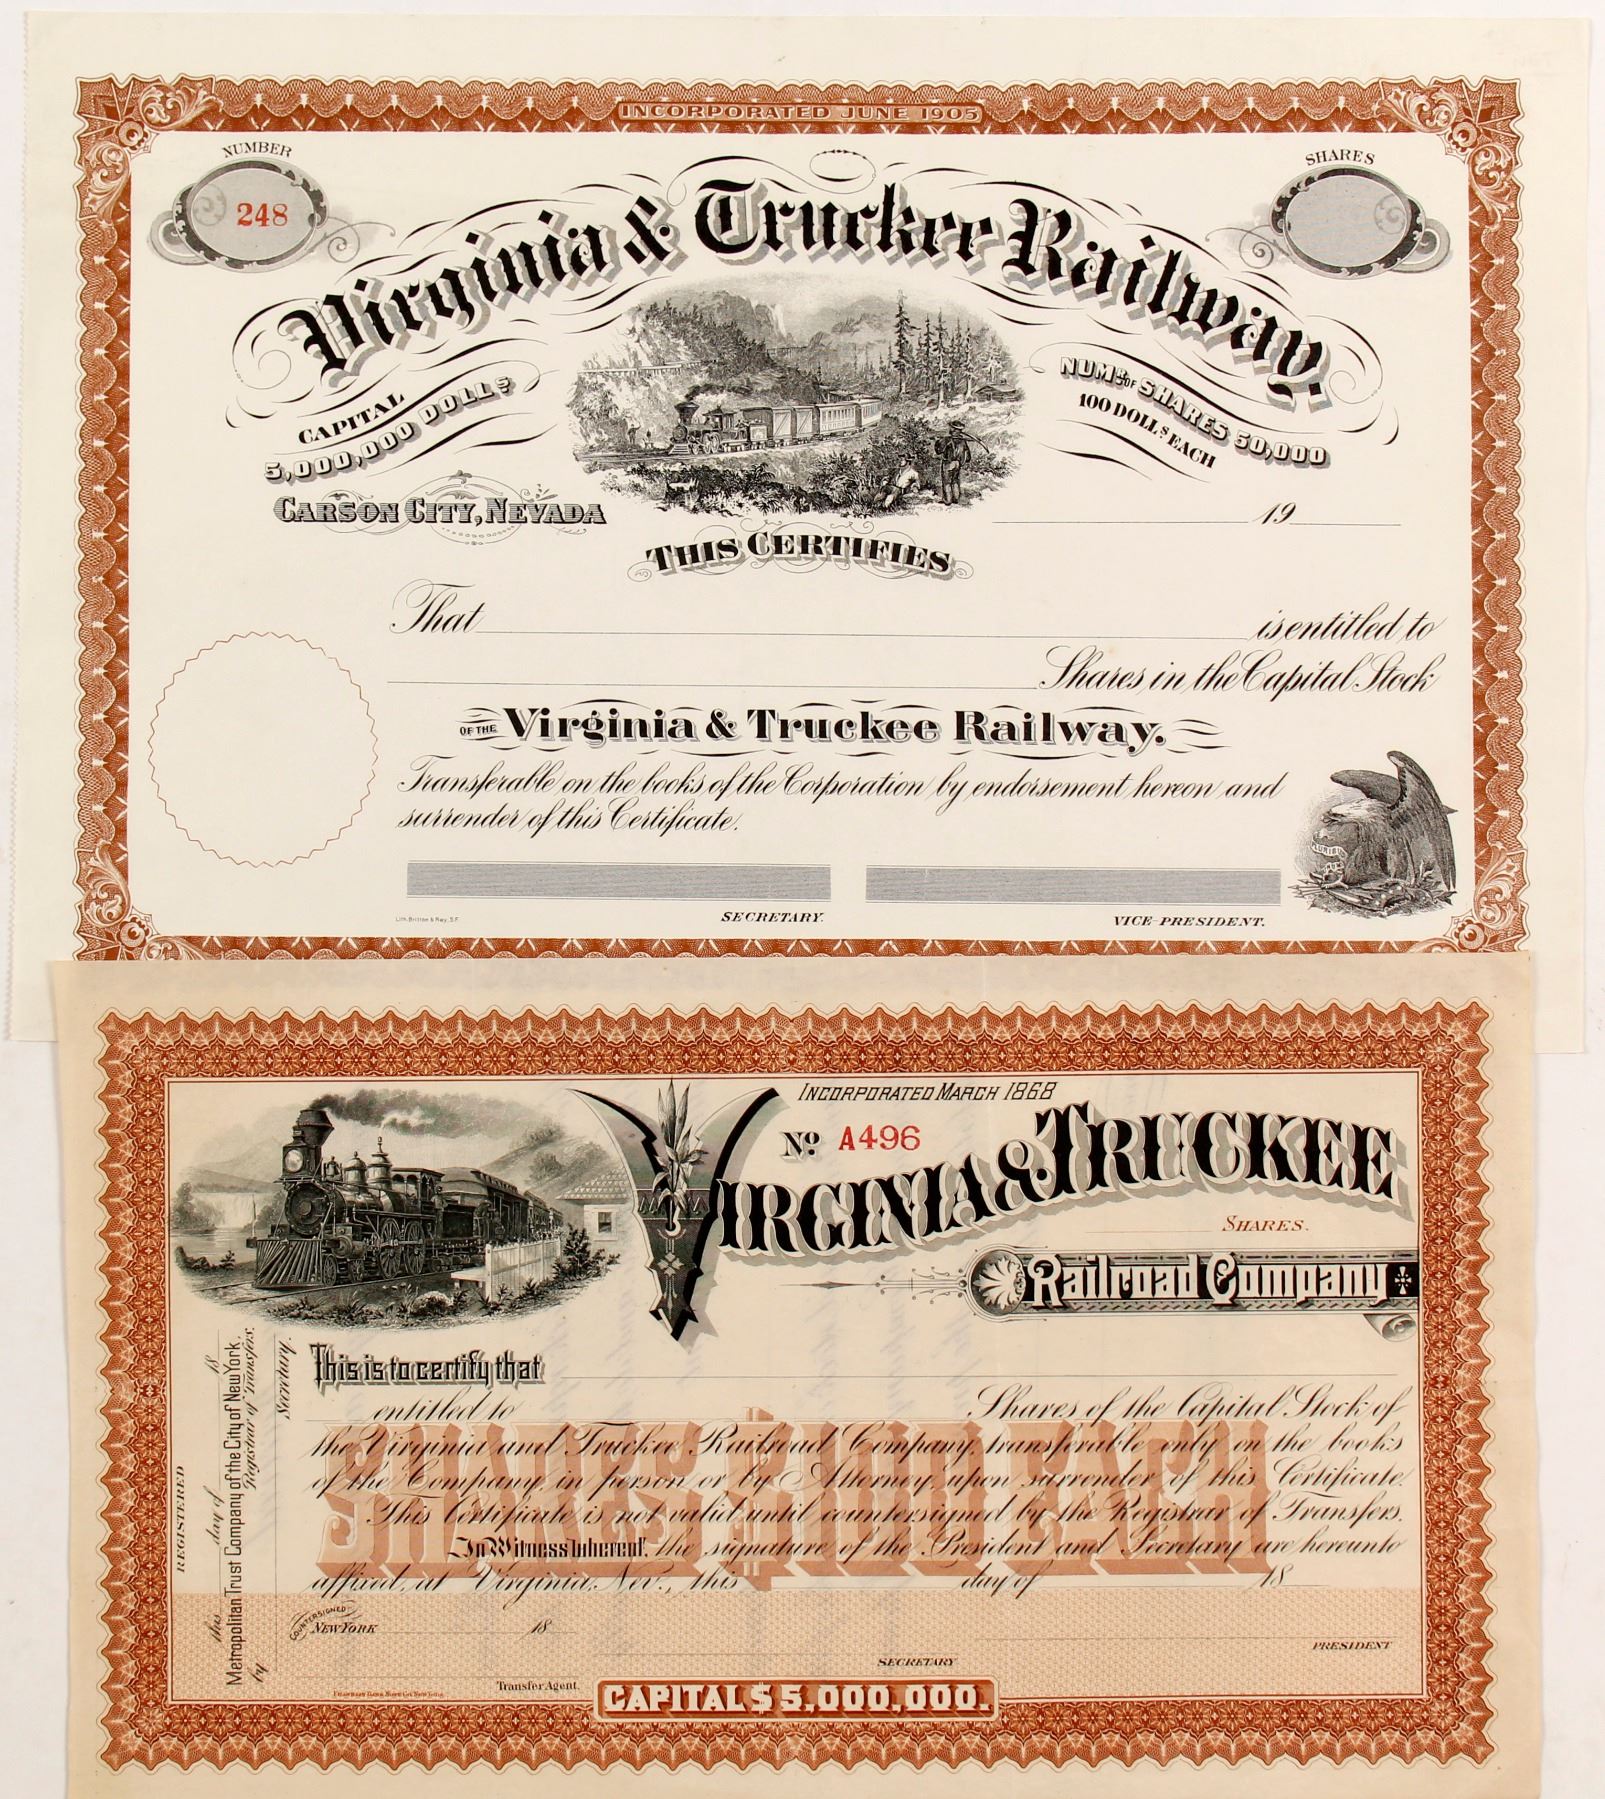 INCORPORATED JUNE 1905
NUMBER
248
SHARES
Virginia & Truckee Railway.
CAPITAL
5,000,000 DOLLS
NUMR OF SHARES 50,000
100 DOLLS EACH
CARSON CITY, NEVADA
19
THIS CERTIFIES
That is entitled to
Shares in the Capital Stock
OF THE Virginia & Truckee Railway.
Transferable on the books of the Corporation by endorsement hereon and
surrender of this Certificate.
Lith. Britton & Rey, S.F.
SECRETARY.
VICE-PRESIDENT.
INCORPORATED MARCH 1868
No A496
VIRGINIA & TRUCKEE
SHARES.
Railroad Company
This is to certify that
entitled to Shares of the Capital Stock of
the Virginia and Truckee Railroad Company, transferable only on the books
of the Company, in person or by Attorney, upon surrender of this Certificate.
This Certificate is not valid until countersigned by the Registrar of Transfers.
In Witness whereof, the signature of the President and Secretary are hereunto
affixed, at Virginia, Nev., this day of 18
SHARES $100 EACH
REGISTERED
this day of 18
Metropolitan Trust Company of the City of New York,
Registrar of Transfers.
by Secretary.
COUNTERSIGNED
NEW YORK 18
Transfer Agent.
SECRETARY
PRESIDENT
CAPITAL $5,000,000.